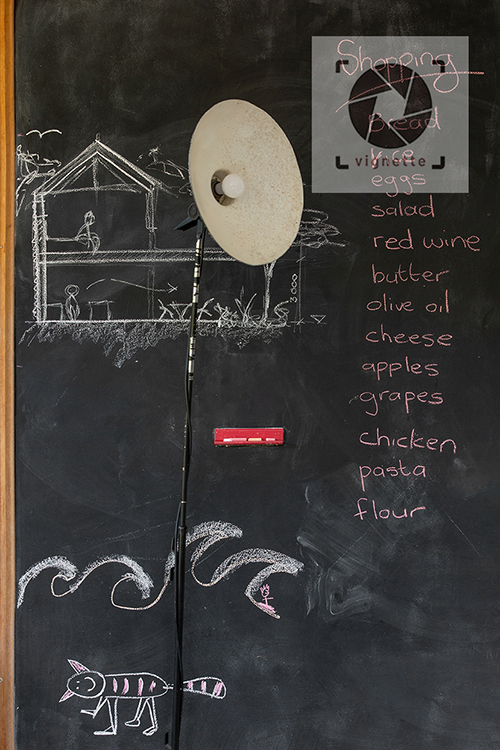 Shopping
Bread
rice
eggs
salad
red wine
butter
olive oil
cheese
apples
grapes
chicken
pasta
flour
3000
vignette